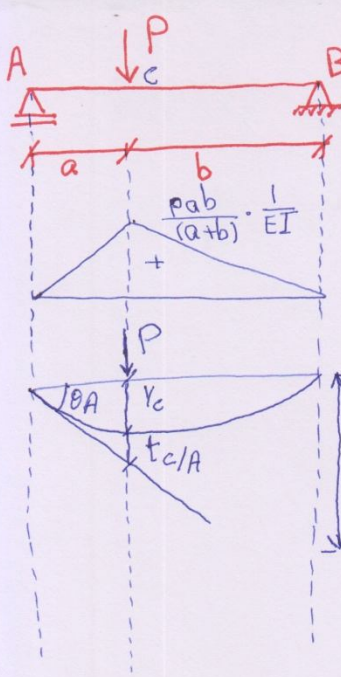 P
A B
c
a b
Pab/(a+b) · 1/EI
+
P
θA Yc
tc/A